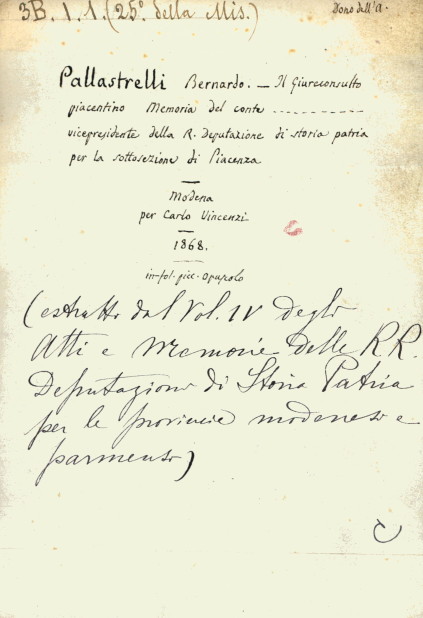 3B. 1. 1. (25º della Mis.)
Dono dell'A.
Pallastrelli Bernardo. — Il Giureconsulto
piacentino Memoria del conte ----------
vicepresidente della R. Deputazione di storia patria
per la sottosezione di Piacenza
—
Modena
per Carlo Vincenzi
—
1868.
in-fol. picc. opuscolo
(estratto dal Vol. IV degli
Atti e Memorie delle RR.
Deputazioni di Storia Patria
per le provincie modenesi e
parmensi)